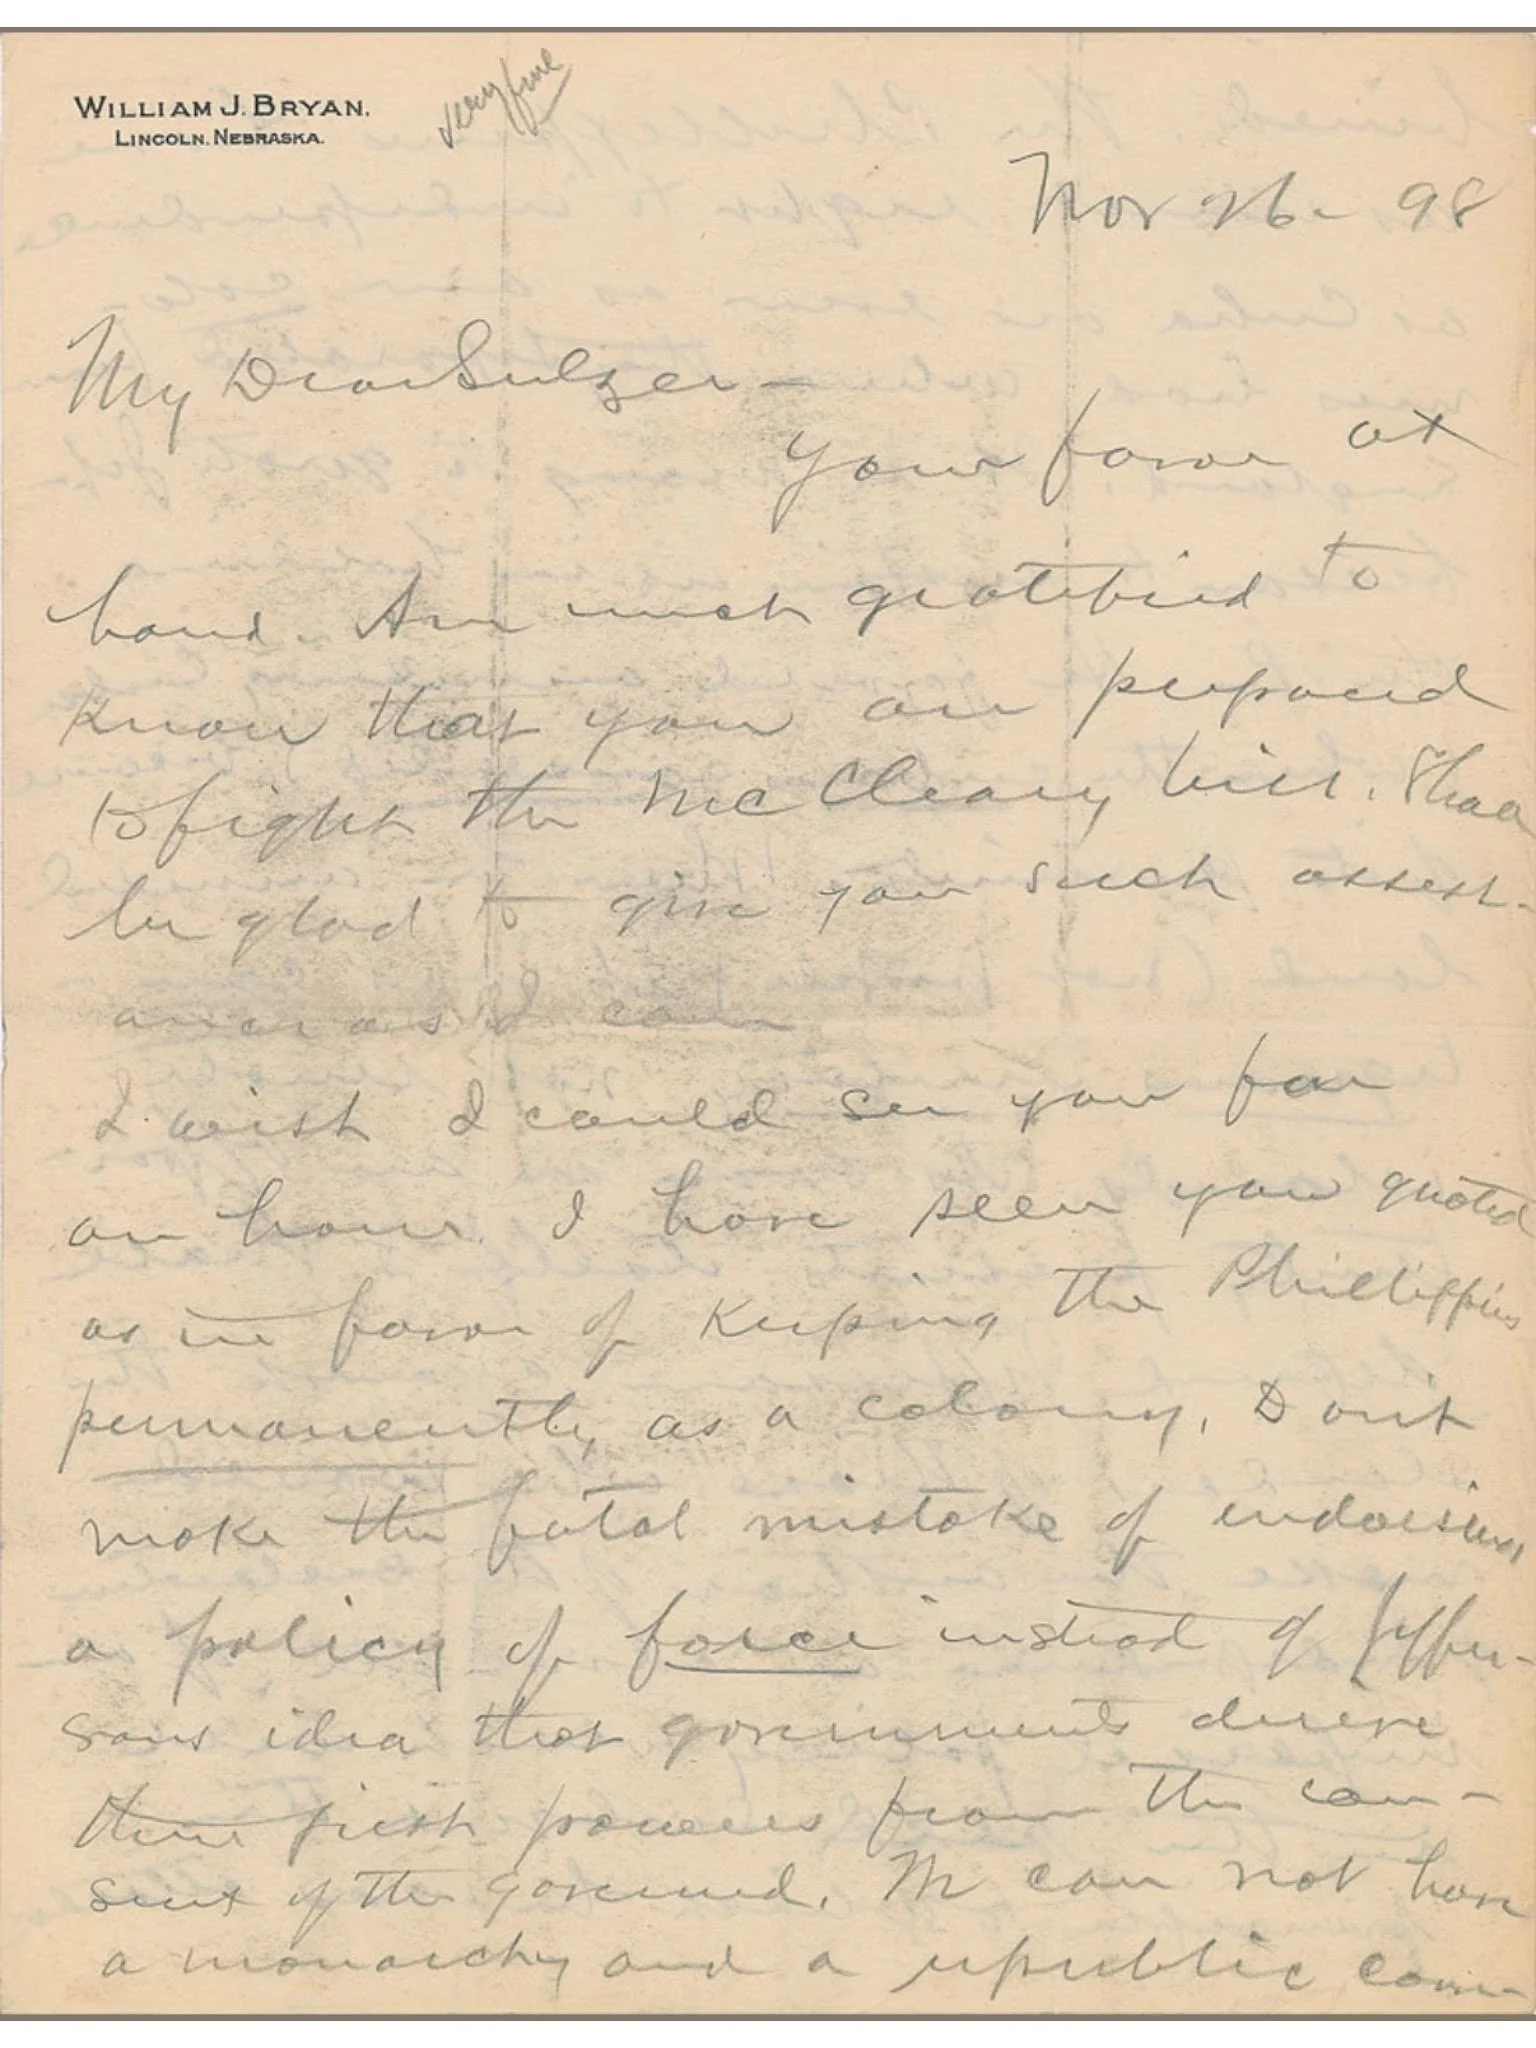 WILLIAM J. BRYAN.
LINCOLN, NEBRASKA.
very fine
Nov 26 - 98
My Dear Sulzer -
Your favor at
hand. Am much gratified to
know that you are prepared
to fight the McCleary bill. Shall
be glad to give you such assist-
ance as I can
I wish I could see you for
an hour. I have seen you quoted
as in favor of keeping the Phillippines
permanently as a colony. Don't
make the fatal mistake of endorsing
a policy of force instead of Jeffer-
sons idea that governments derive
their just powers from the con-
sent of the governed. We can not have
a monarchy and a republic com-